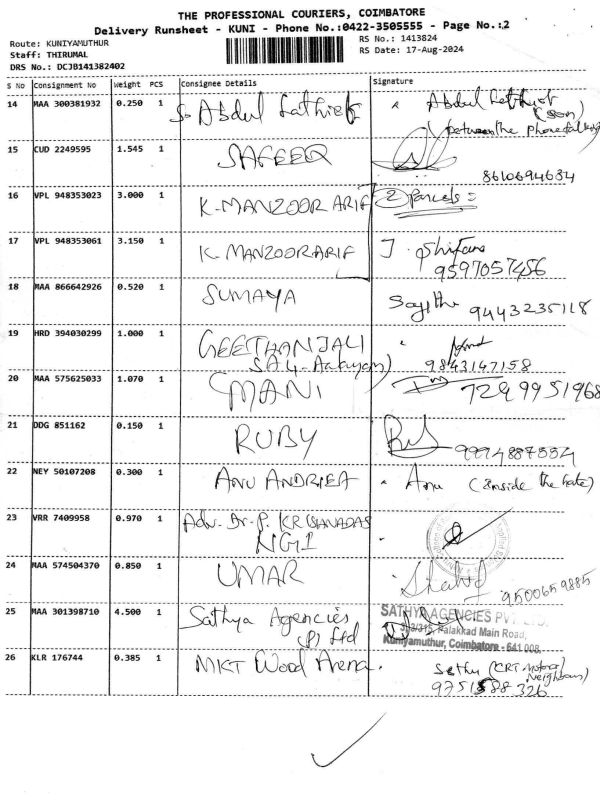 THE PROFESSIONAL COURIERS, COIMBATORE
Delivery Runsheet - KUNI - Phone No.:0422-3505555 - Page No.:2
Route: KUNIYAMUTHUR
RS No.: 1413824
Staff: THIRUMAL
RS Date: 17-Aug-2024
DRS No.: DCJB141382402
S No Consignment No Weight PCS Consignee Details Signature
14 MAA 300381932 0.250 1 Abdul Lathief Abdul
(son)
between the phone talking
15 CUD 2249595 1.545 1 SAFEER
8610694634
16 VPL 948353023 3.000 1 K.MANZOOR ARIF 2 parcels =
17 VPL 948353061 3.150 1 K.MANZOORARIF J.
9597057456
18 MAA 866642926 0.520 1 SUMAYA 9443235118
19 HRD 394030299 1.000 1 GEETHANJALI
9843147158
20 MAA 575625033 1.070 1 MANI 7299951968
21 DDG 851162 0.150 1 RUBY
9994887554
22 NEY 50107208 0.300 1 ANU ANDRIEA Anu (Inside the Gate)
23 VRR 7409958 0.970 1 Adv. Dr. P. KRISHNADAS
NGI
24 MAA 574504370 0.850 1 UMAR
9500659885
25 MAA 301398710 4.500 1 Sathya Agencies
(P) Ltd
SATHYA AGENCIES PVT. LTD.
Palakkad Main Road,
Kuniyamuthur, Coimbatore - 641 008.
26 KLR 176744 0.385 1 MKT Wood Arena. Sethu (CRT Motors)
Neighbour)
9751588326